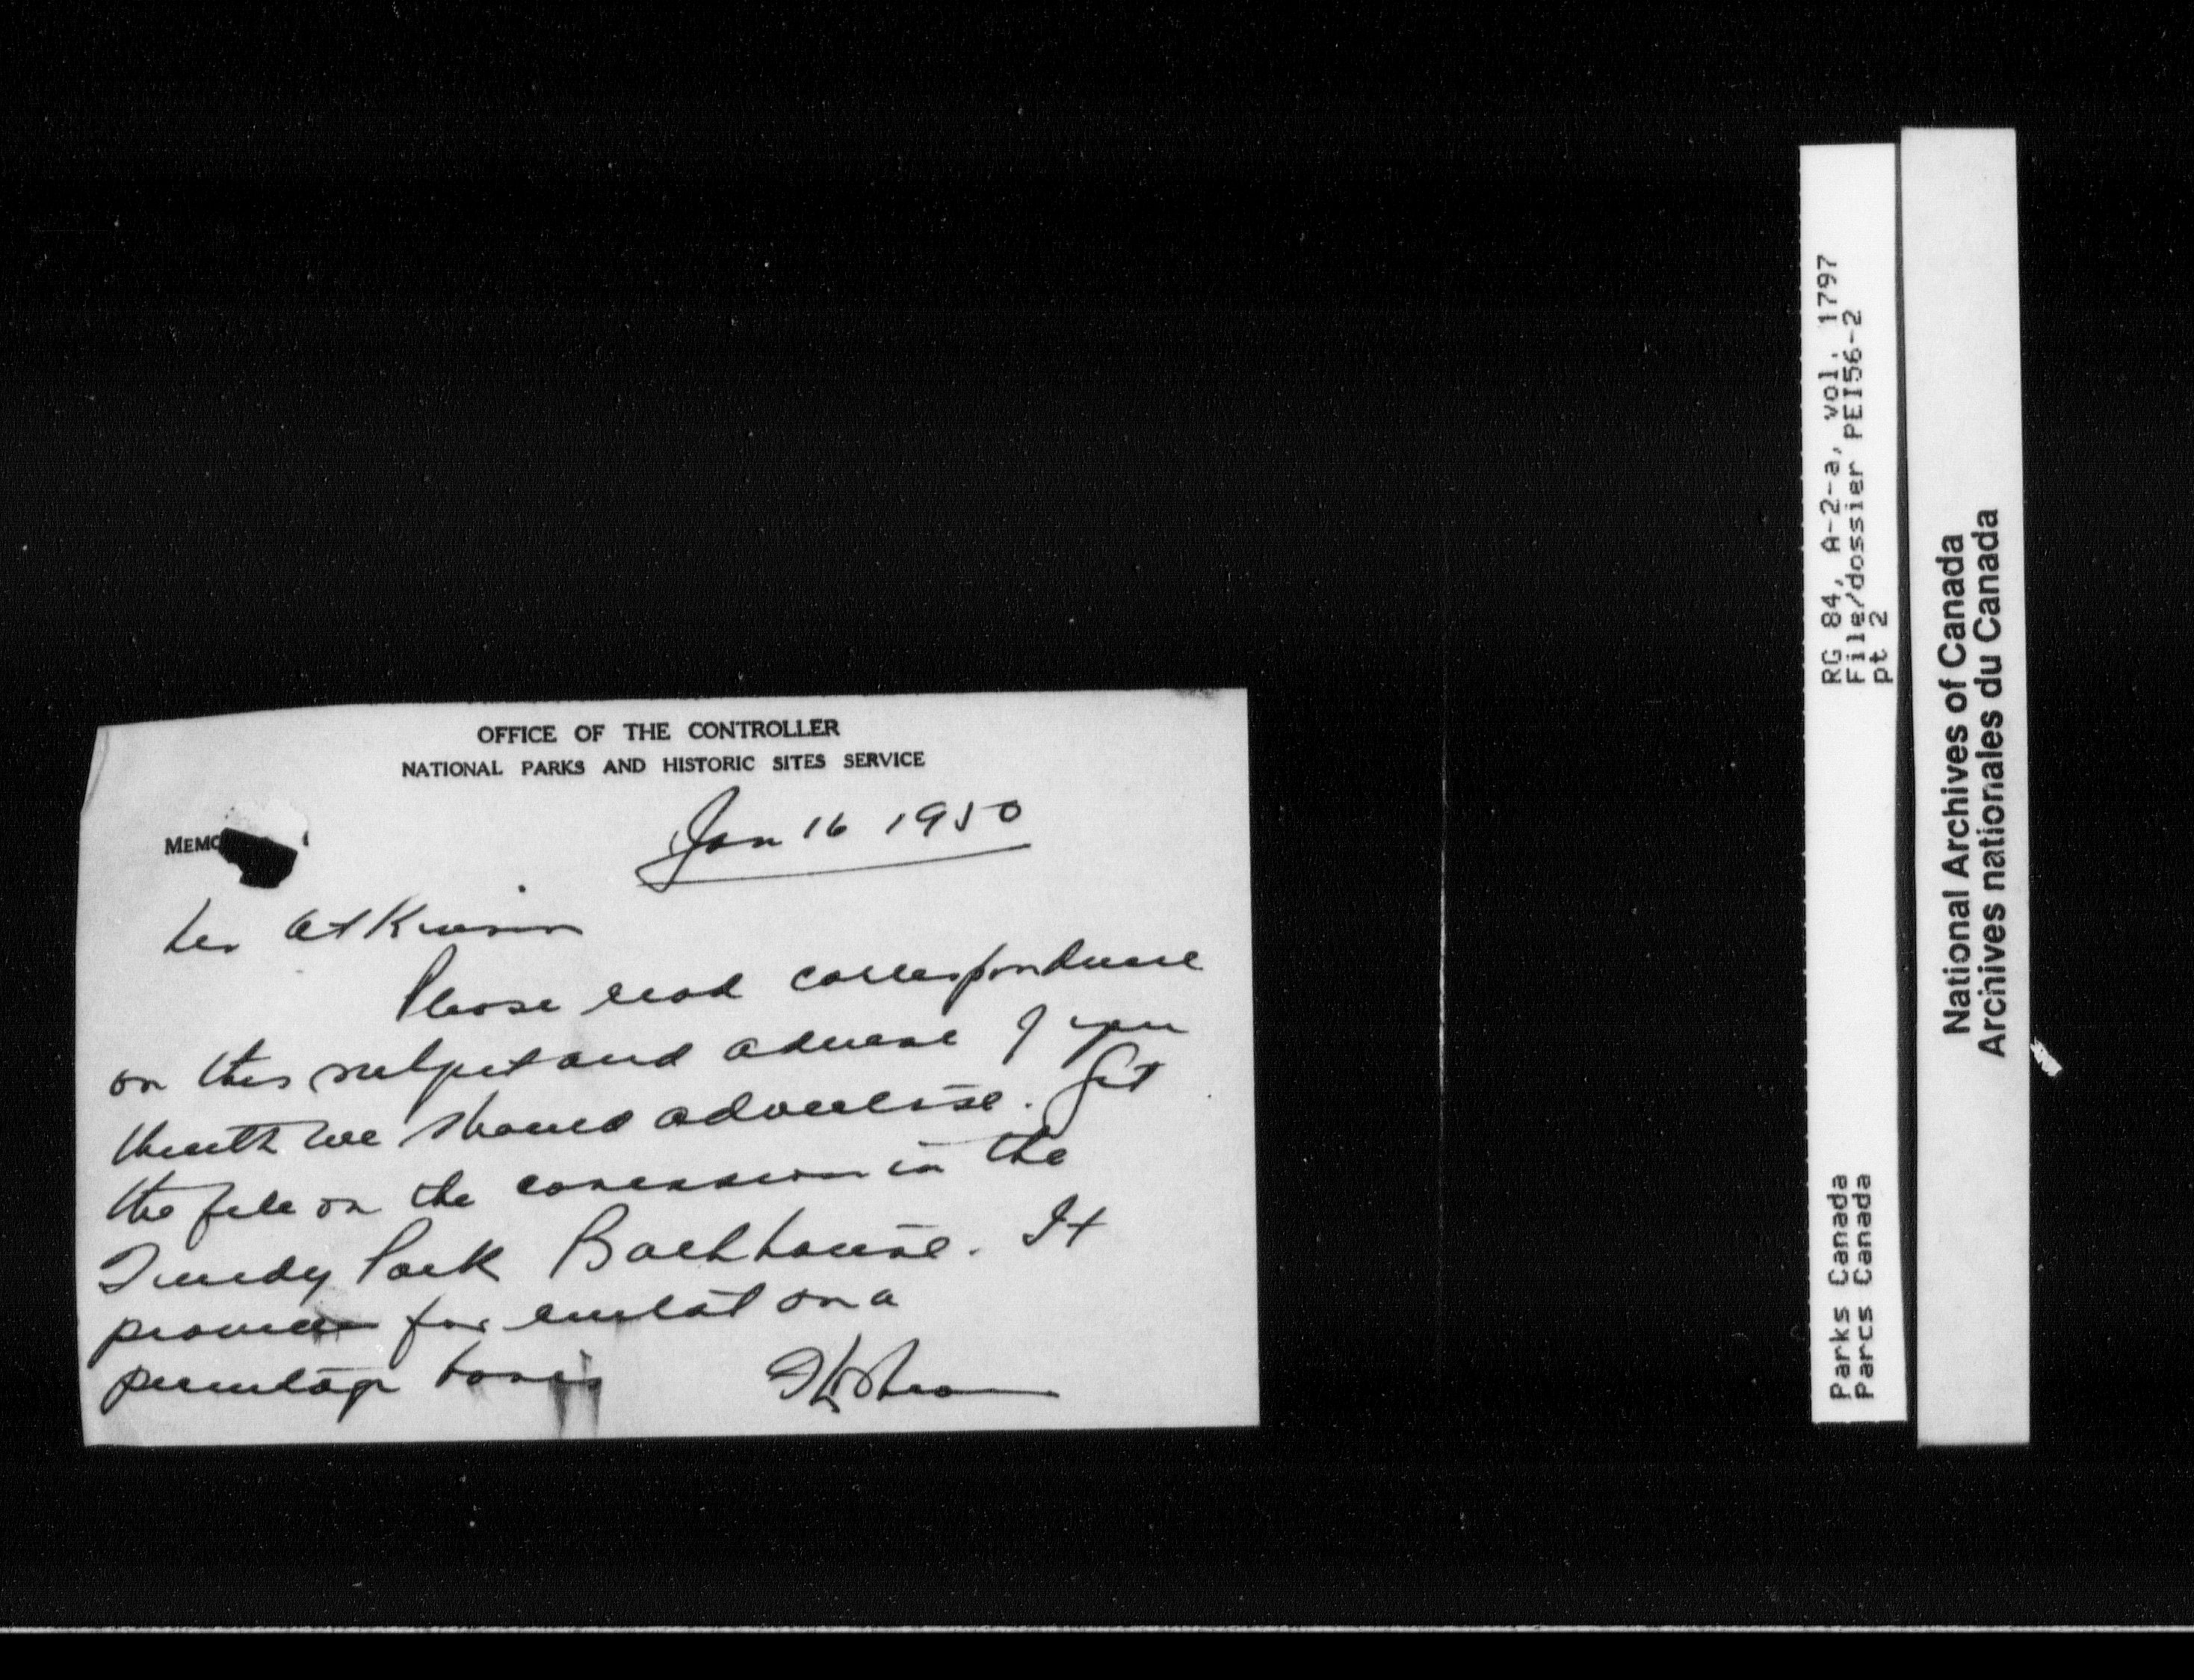 OFFICE OF THE CONTROLLER
NATIONAL PARKS AND HISTORIC SITES SERVICE
Jan 16 1950
MEMO
Mr Atkinson
Please read correspondence
on this subject and advise if you
think we should advertise. Get
the file on the concession in the
Fundy Park Bathhouse. It
provides for rental on a
percentage basis
RG 84, A-2-a, vol. 1797
File/dossier PEI56-2
pt 2
Parks Canada
Parcs Canada
National Archives of Canada
Archives nationales du Canada